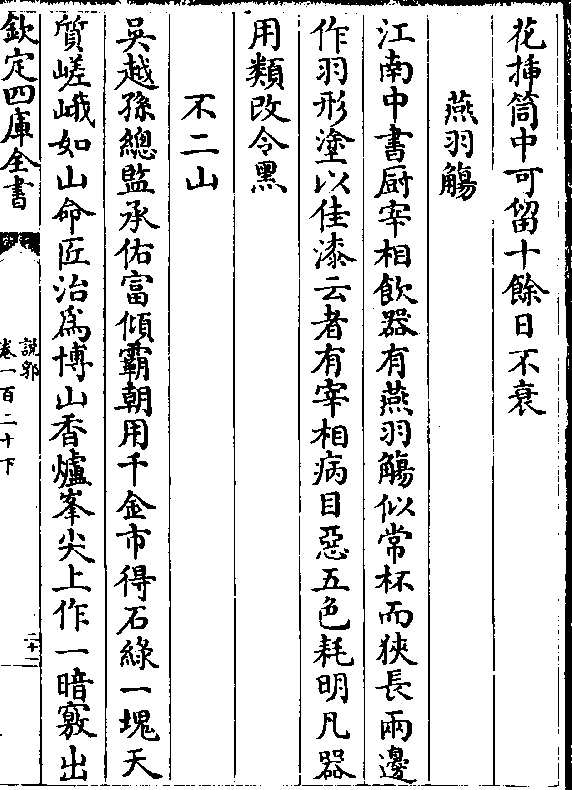 花挿筒中可留十餘日不衰
燕羽觴
江南中書厨宰相飲器有燕羽觴似常杯而狹長兩邊
作羽形塗以佳漆云昔有宰相病目惡五色耗明凡器
用類改令黑
不二山
吳越孫總監承佑富傾霸朝用千金市得石綠一塊天
質嵯峨如山命匠治爲博山香爐峯尖上作一暗竅出
欽定四庫全書
說郛
卷一百二十下
三十二